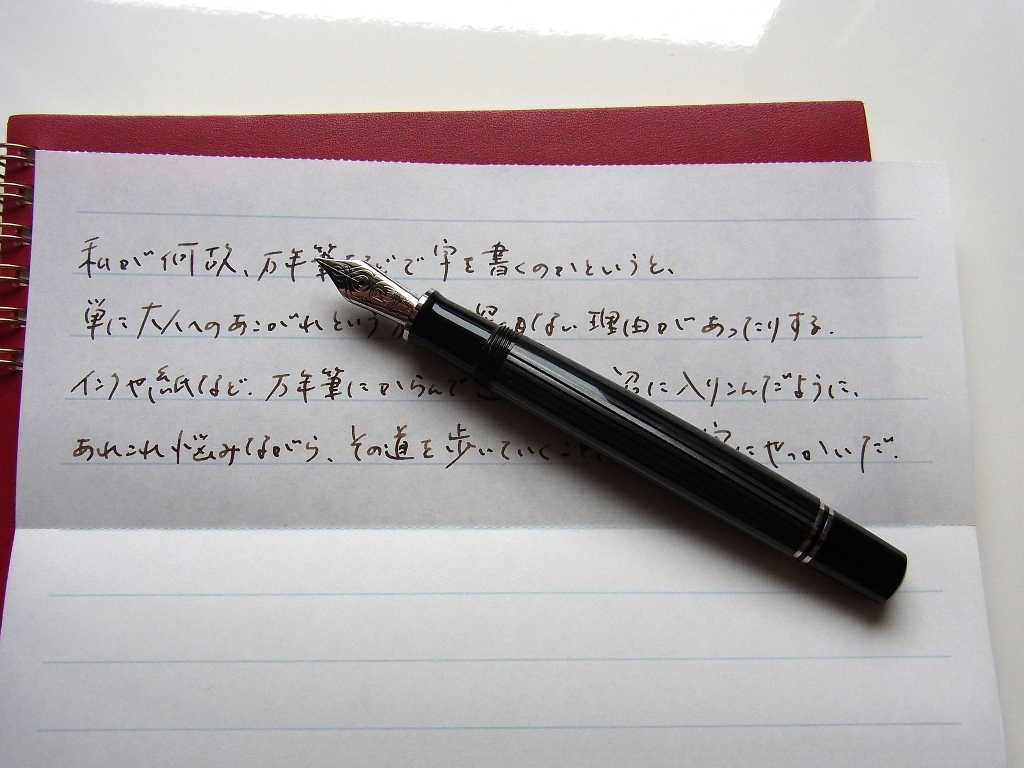 私が何故、万年筆などで字を書くのかというと、
単に大人へのあこがれという ない理由があったりする.
インクや紙など. 万年筆にからんで 沼に入りこんだように、
あれこれ悩みながら、その道を歩いていくこと にやっかいだ.